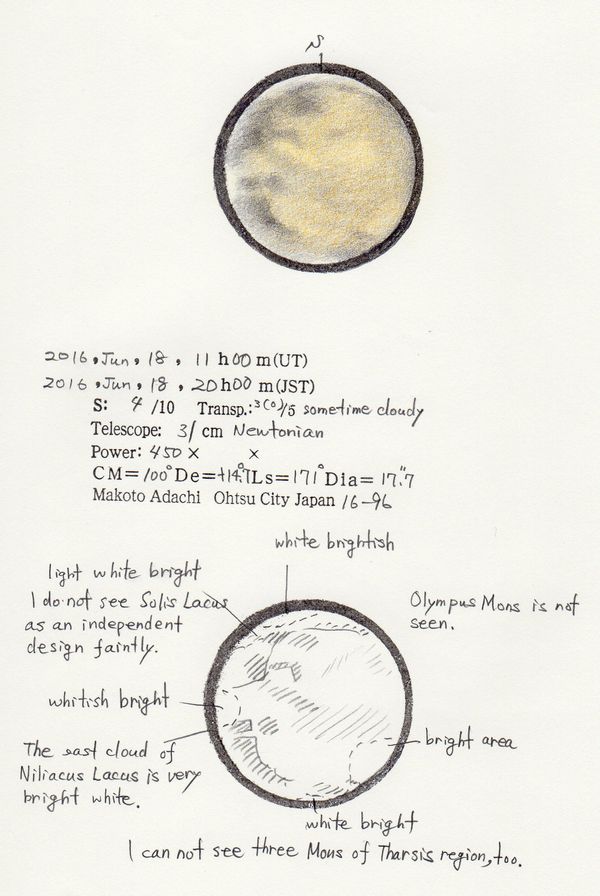 S
2016, Jun, 18, 11 h 00 m (UT)
2016, Jun, 18, 20 h 00 m (JST)
S: 4 /10 Transp.: 3(0)/5 sometime cloudy
Telescope: 31 cm Newtonian
Power: 450 × ×
CM=100° De=+14.°7 Ls=171° Dia= 17."7
Makoto Adachi Ohtsu City Japan 16-96
white brightish
light white bright
I do not see Solis Lacus
as an independent
design faintly.
Olympus Mons is not
seen.
whitish bright
bright area
The east cloud of
Niliacus Lacus is very
bright white.
white bright
I can not see three Mons of Tharsis region, too.